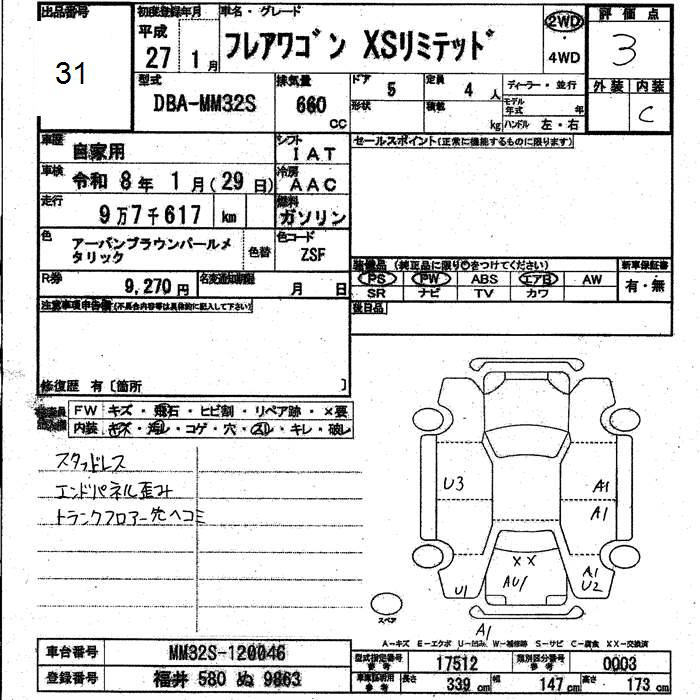 出品番号
31
初度登録年月
平成
27 1月
車名・グレード
フレアワゴン XSリミテッド
2WD
4WD
評価点
3
外装 内装
C
型式
DBA-MM32S
排気量
660
CC
ドア 5
形状
定員 4 人
積載
kg
ディーラー・並行
モデル年式 年
ハンドル 左・右
車歴
自家用
シフト
IAT
セールスポイント(正常に機能するものに限ります)
車検
令和 8年 1月(29日)
冷房
AAC
走行
9万7千617 km
燃料
ガソリン
色
アーバンブラウンパールメ
タリック
色替
色コード
ZSF
装備品 (純正品に限り○をつけてください)
PS PW ABS エアB AW
SR ナビ TV カワ
新車保証書
有・無
R券
9,270円
名変通知期限
月 日
後日品
注意事項申告欄(不具合内容等は具体的に記入して下さい)
修復歴 有〔箇所 〕
FW キズ・飛石・ヒビ割・リペア跡・×要
内装 キズ・汚レ・コゲ・穴・スレ・キレ・破レ
スタッドレス
エンドパネル歪み
トランクフロアー先ヘコミ
U3
A1
A1
XX
AU1
U1
A1
U2
A1
スペア
A-キズ E-エクボ U-凹み W-補修跡 S-サビ C-腐食 XX-交換済
車台番号
MM32S-120046
登録番号
福井 580 ぬ 9863
型式指定番号
参考
17512
類別区分番号
参考
0003
車車証明用
参考
長さ 339 cm 幅 147 cm 高さ 173 cm